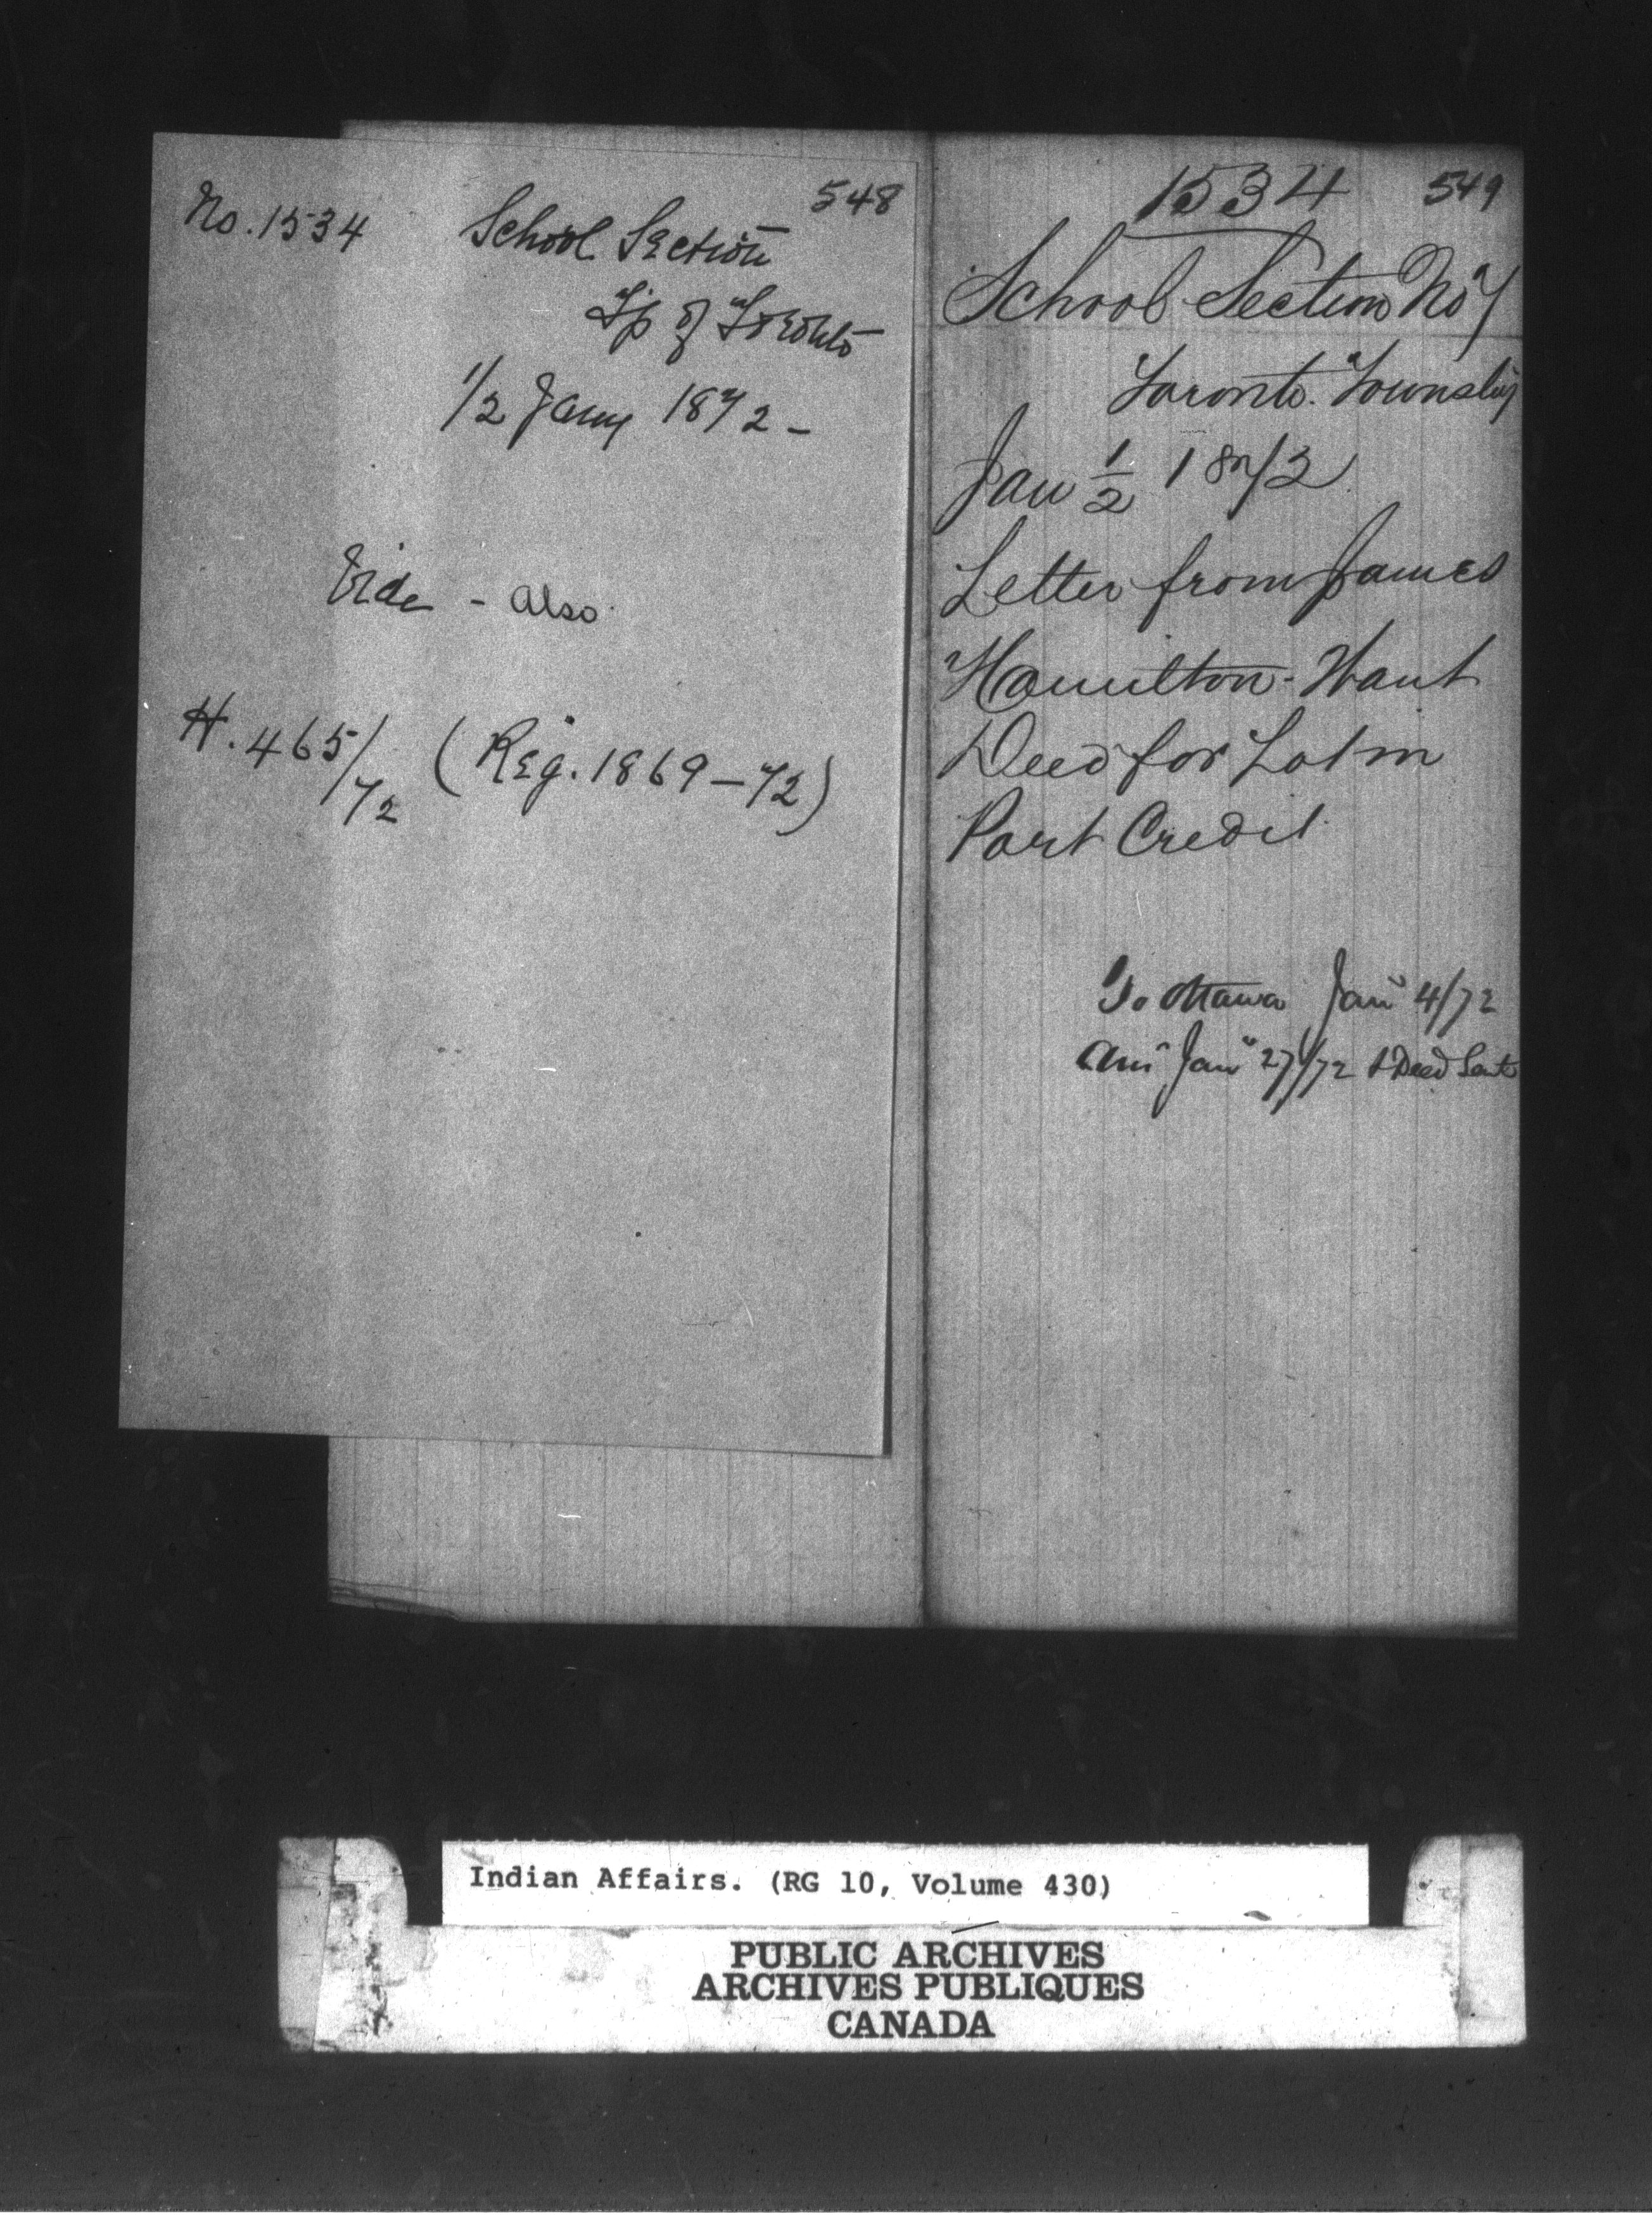 548
No. 1534 School Section
Tp of Toronto
1/2 Jany 1872 -
Vide - also
H. 465/72 (Reg. 1869-72)
549
1534
School Section No 7
Toronto Township
Jan 1/2 1872
Letter from James
Hamilton - Want
Deed for Lot in
Port Credit
To Ottawa Jany 4/72
Ansd Jany 27/72 & Deed Sent
Indian Affairs. (RG 10, Volume 430)
PUBLIC ARCHIVES
ARCHIVES PUBLIQUES
CANADA